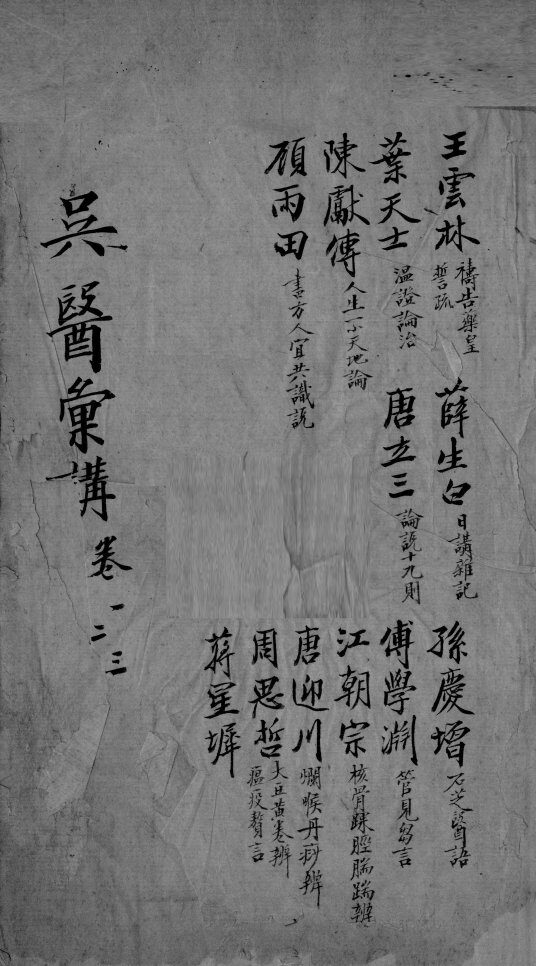 王雲林 禱告藥皇誓疏
薛生白 日講雜記
孫慶增 石芝醫語
葉天士 温證論治
唐立三 論説十九則
傅學淵 管見芻言
陳獻傳 人生一小天地論
江朝宗 核骨踝脛腨踹辨
顧雨田 書方人宜共識説
唐迎川 爛喉丹痧辨
周思哲 大豆黄卷辨
瘟疫贅言
蔣星墀
吳醫彙講 卷一二三